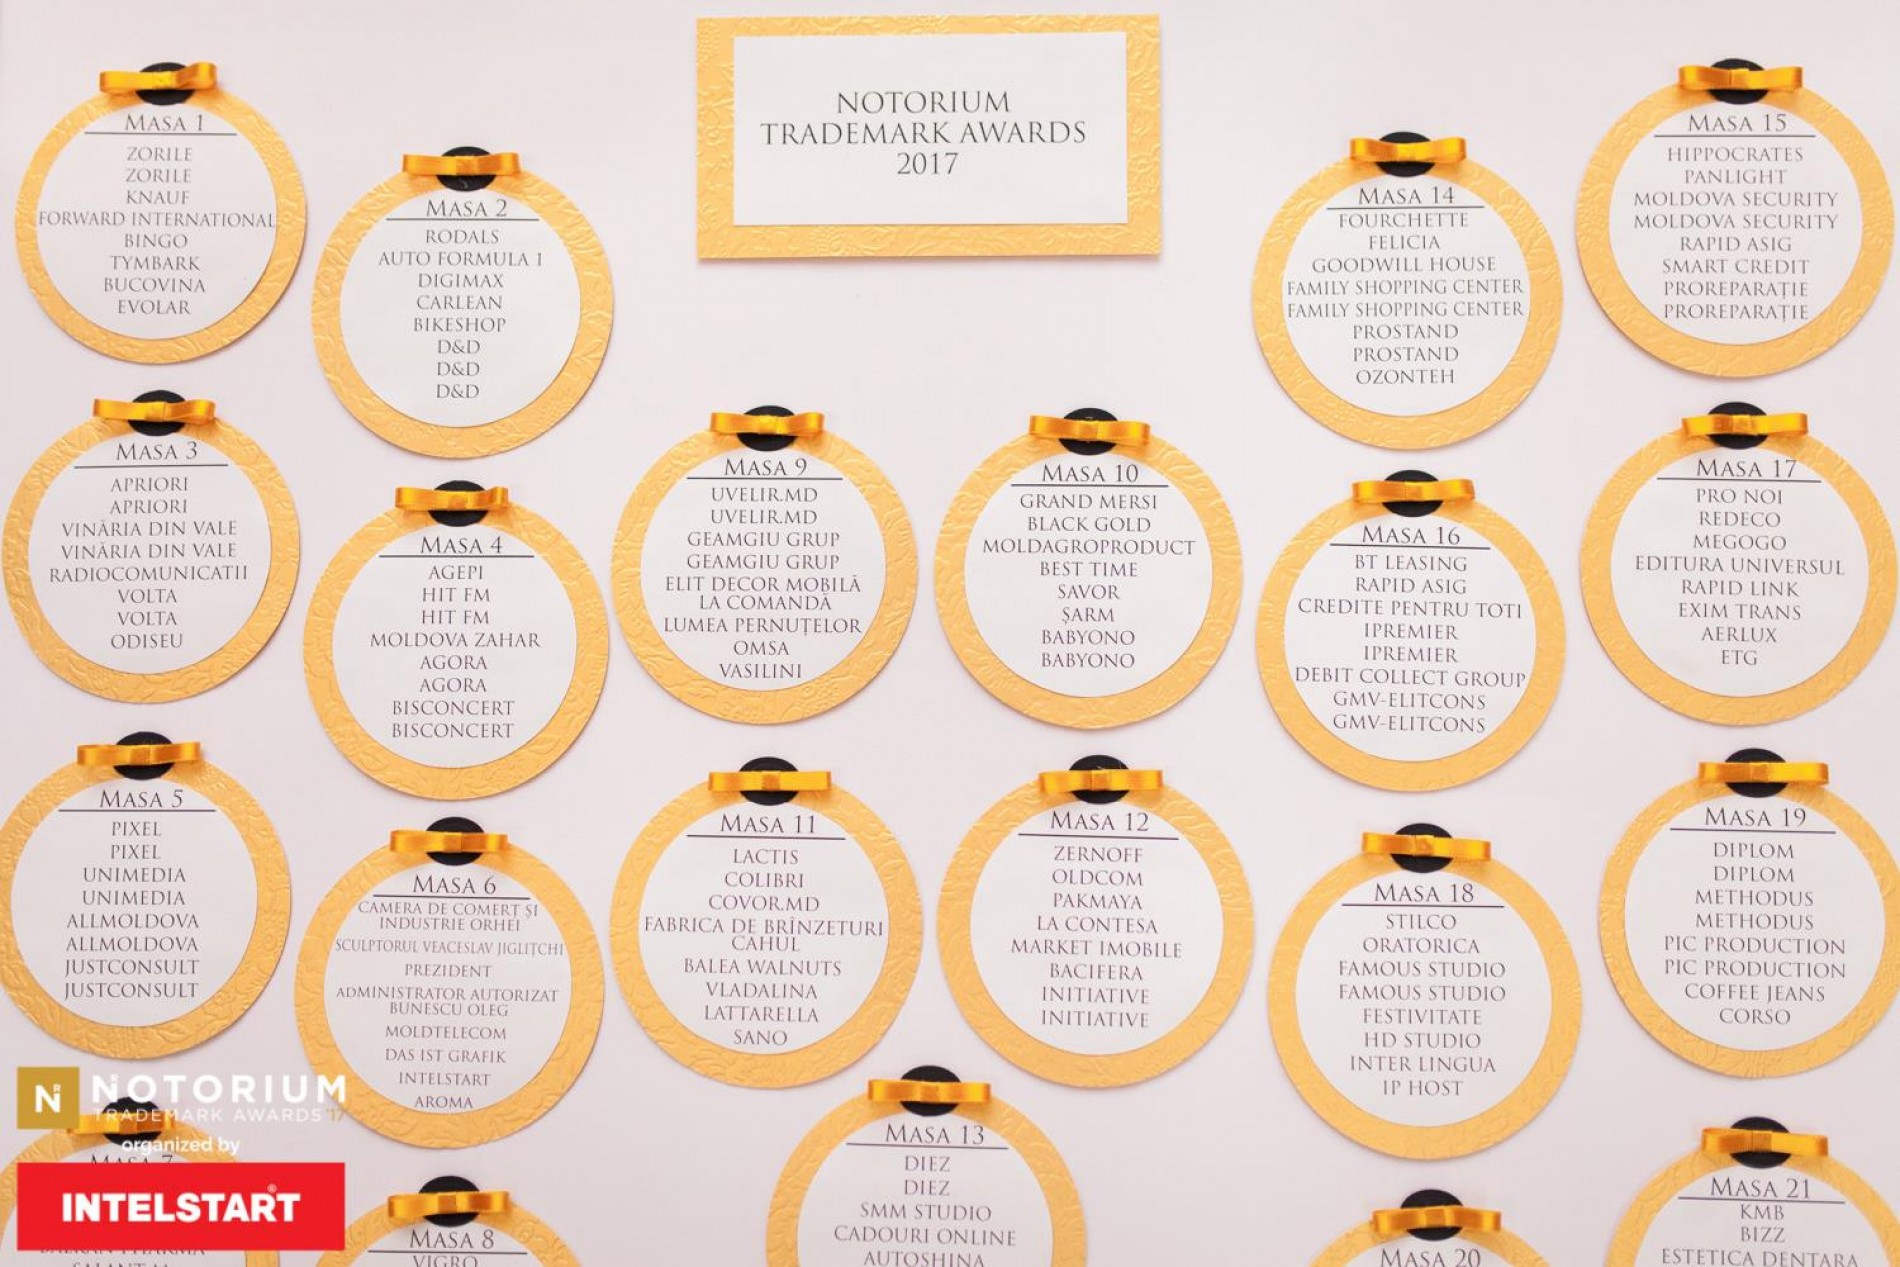 NOTORIUM
TRADEMARK AWARDS
2017
MASA 1
ZORILE
ZORILE
KNAUF
FORWARD INTERNATIONAL
BINGO
TYMBARK
BUCOVINA
EVOLAR
MASA 2
RODALS
AUTO FORMULA 1
DIGIMAX
CARLEAN
BIKESHOP
D&D
D&D
D&D
MASA 3
APRIORI
APRIORI
VINĂRIA DIN VALE
VINĂRIA DIN VALE
RADIOCOMUNICATII
VOLTA
VOLTA
ODISEU
MASA 4
AGEPI
HIT FM
HIT FM
MOLDOVA ZAHAR
AGORA
AGORA
BISCONCERT
BISCONCERT
MASA 5
PIXEL
PIXEL
UNIMEDIA
UNIMEDIA
ALLMOLDOVA
ALLMOLDOVA
JUSTCONSULT
JUSTCONSULT
MASA 6
CAMERA DE COMERȚ ȘI
INDUSTRIE ORHEI
SCULPTORUL VEACESLAV JIGLIȚCHI
PREZIDENT
ADMINISTRATOR AUTORIZAT
BUNESCU OLEG
MOLDTELECOM
DAS IST GRAFIK
INTELSTART
AROMA
MASA 7
BALKAN PHARMA
MASA 8
VIGRO
MASA 9
UVELIR.MD
UVELIR.MD
GEAMGIU GRUP
GEAMGIU GRUP
ELIT DECOR MOBILĂ
LA COMANDĂ
LUMEA PERNUȚELOR
OMSA
VASILINI
MASA 10
GRAND MERSI
BLACK GOLD
MOLDAGROPRODUCT
BEST TIME
SAVOR
ȘARM
BABYONO
BABYONO
MASA 11
LACTIS
COLIBRI
COVOR.MD
FABRICA DE BRÎNZETURI
CAHUL
BALEA WALNUTS
VLADALINA
LATTARELLA
SANO
MASA 12
ZERNOFF
OLDCOM
PAKMAYA
LA CONTESA
MARKET IMOBILE
BACIFERA
INITIATIVE
INITIATIVE
MASA 13
DIEZ
DIEZ
SMM STUDIO
CADOURI ONLINE
AUTOSHINA
MASA 14
FOURCHETTE
FELICIA
GOODWILL HOUSE
FAMILY SHOPPING CENTER
FAMILY SHOPPING CENTER
PROSTAND
PROSTAND
OZONTEH
MASA 15
HIPPOCRATES
PANLIGHT
MOLDOVA SECURITY
MOLDOVA SECURITY
RAPID ASIG
SMART CREDIT
PROREPARAȚIE
PROREPARAȚIE
MASA 16
BT LEASING
RAPID ASIG
CREDITE PENTRU TOTI
IPREMIER
IPREMIER
DEBIT COLLECT GROUP
GMV-ELITCONS
GMV-ELITCONS
MASA 17
PRO NOI
REDECO
MEGOGO
EDITURA UNIVERSUL
RAPID LINK
EXIM TRANS
AERLUX
ETG
MASA 18
STILCO
ORATORICA
FAMOUS STUDIO
FAMOUS STUDIO
FESTIVITATE
HD STUDIO
INTER LINGUA
IP HOST
MASA 19
DIPLOM
DIPLOM
METHODUS
METHODUS
PIC PRODUCTION
PIC PRODUCTION
COFFEE JEANS
CORSO
MASA 20
MASA 21
KMB
BIZZ
ESTETICA DENTARA
N NOTORIUM
TRADEMARK AWARDS '17
organized by
INTELSTART®